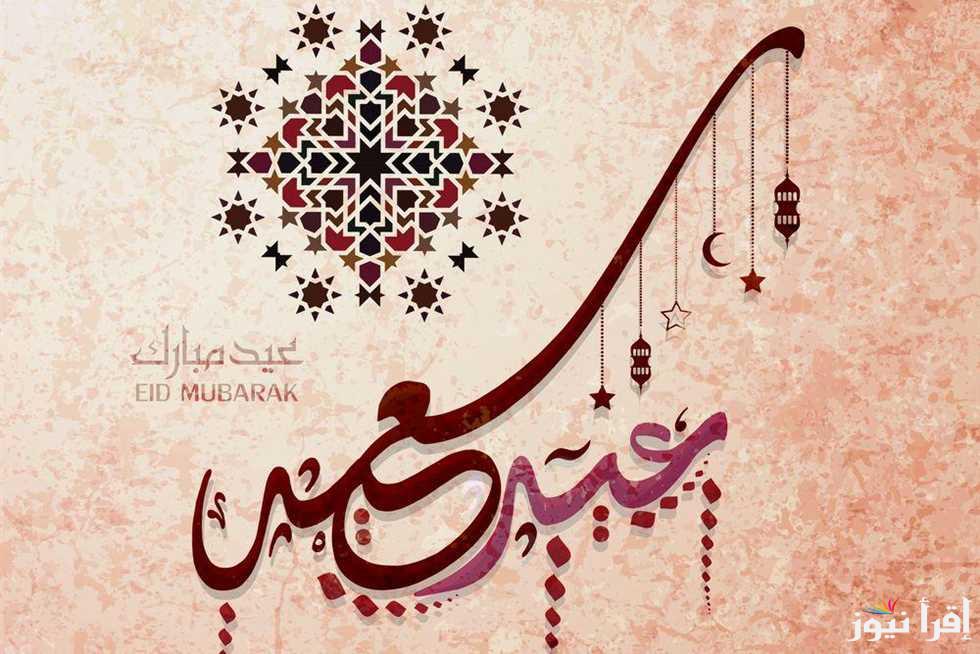 عيد مبارك
EID MUBARAK
عيد سعيد
إقرأ نيوز